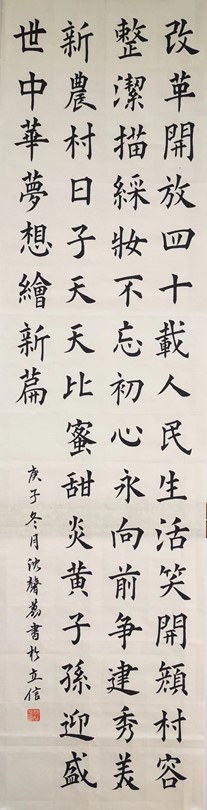 改革開放四十載人民生活笑開顏村容
整潔描綵妝不忘初心永向前争建秀美
新農村日子天天比蜜甜炎黄子孫迎盛
世中華夢想繪新篇
庚子冬月沈馨荔書於立信